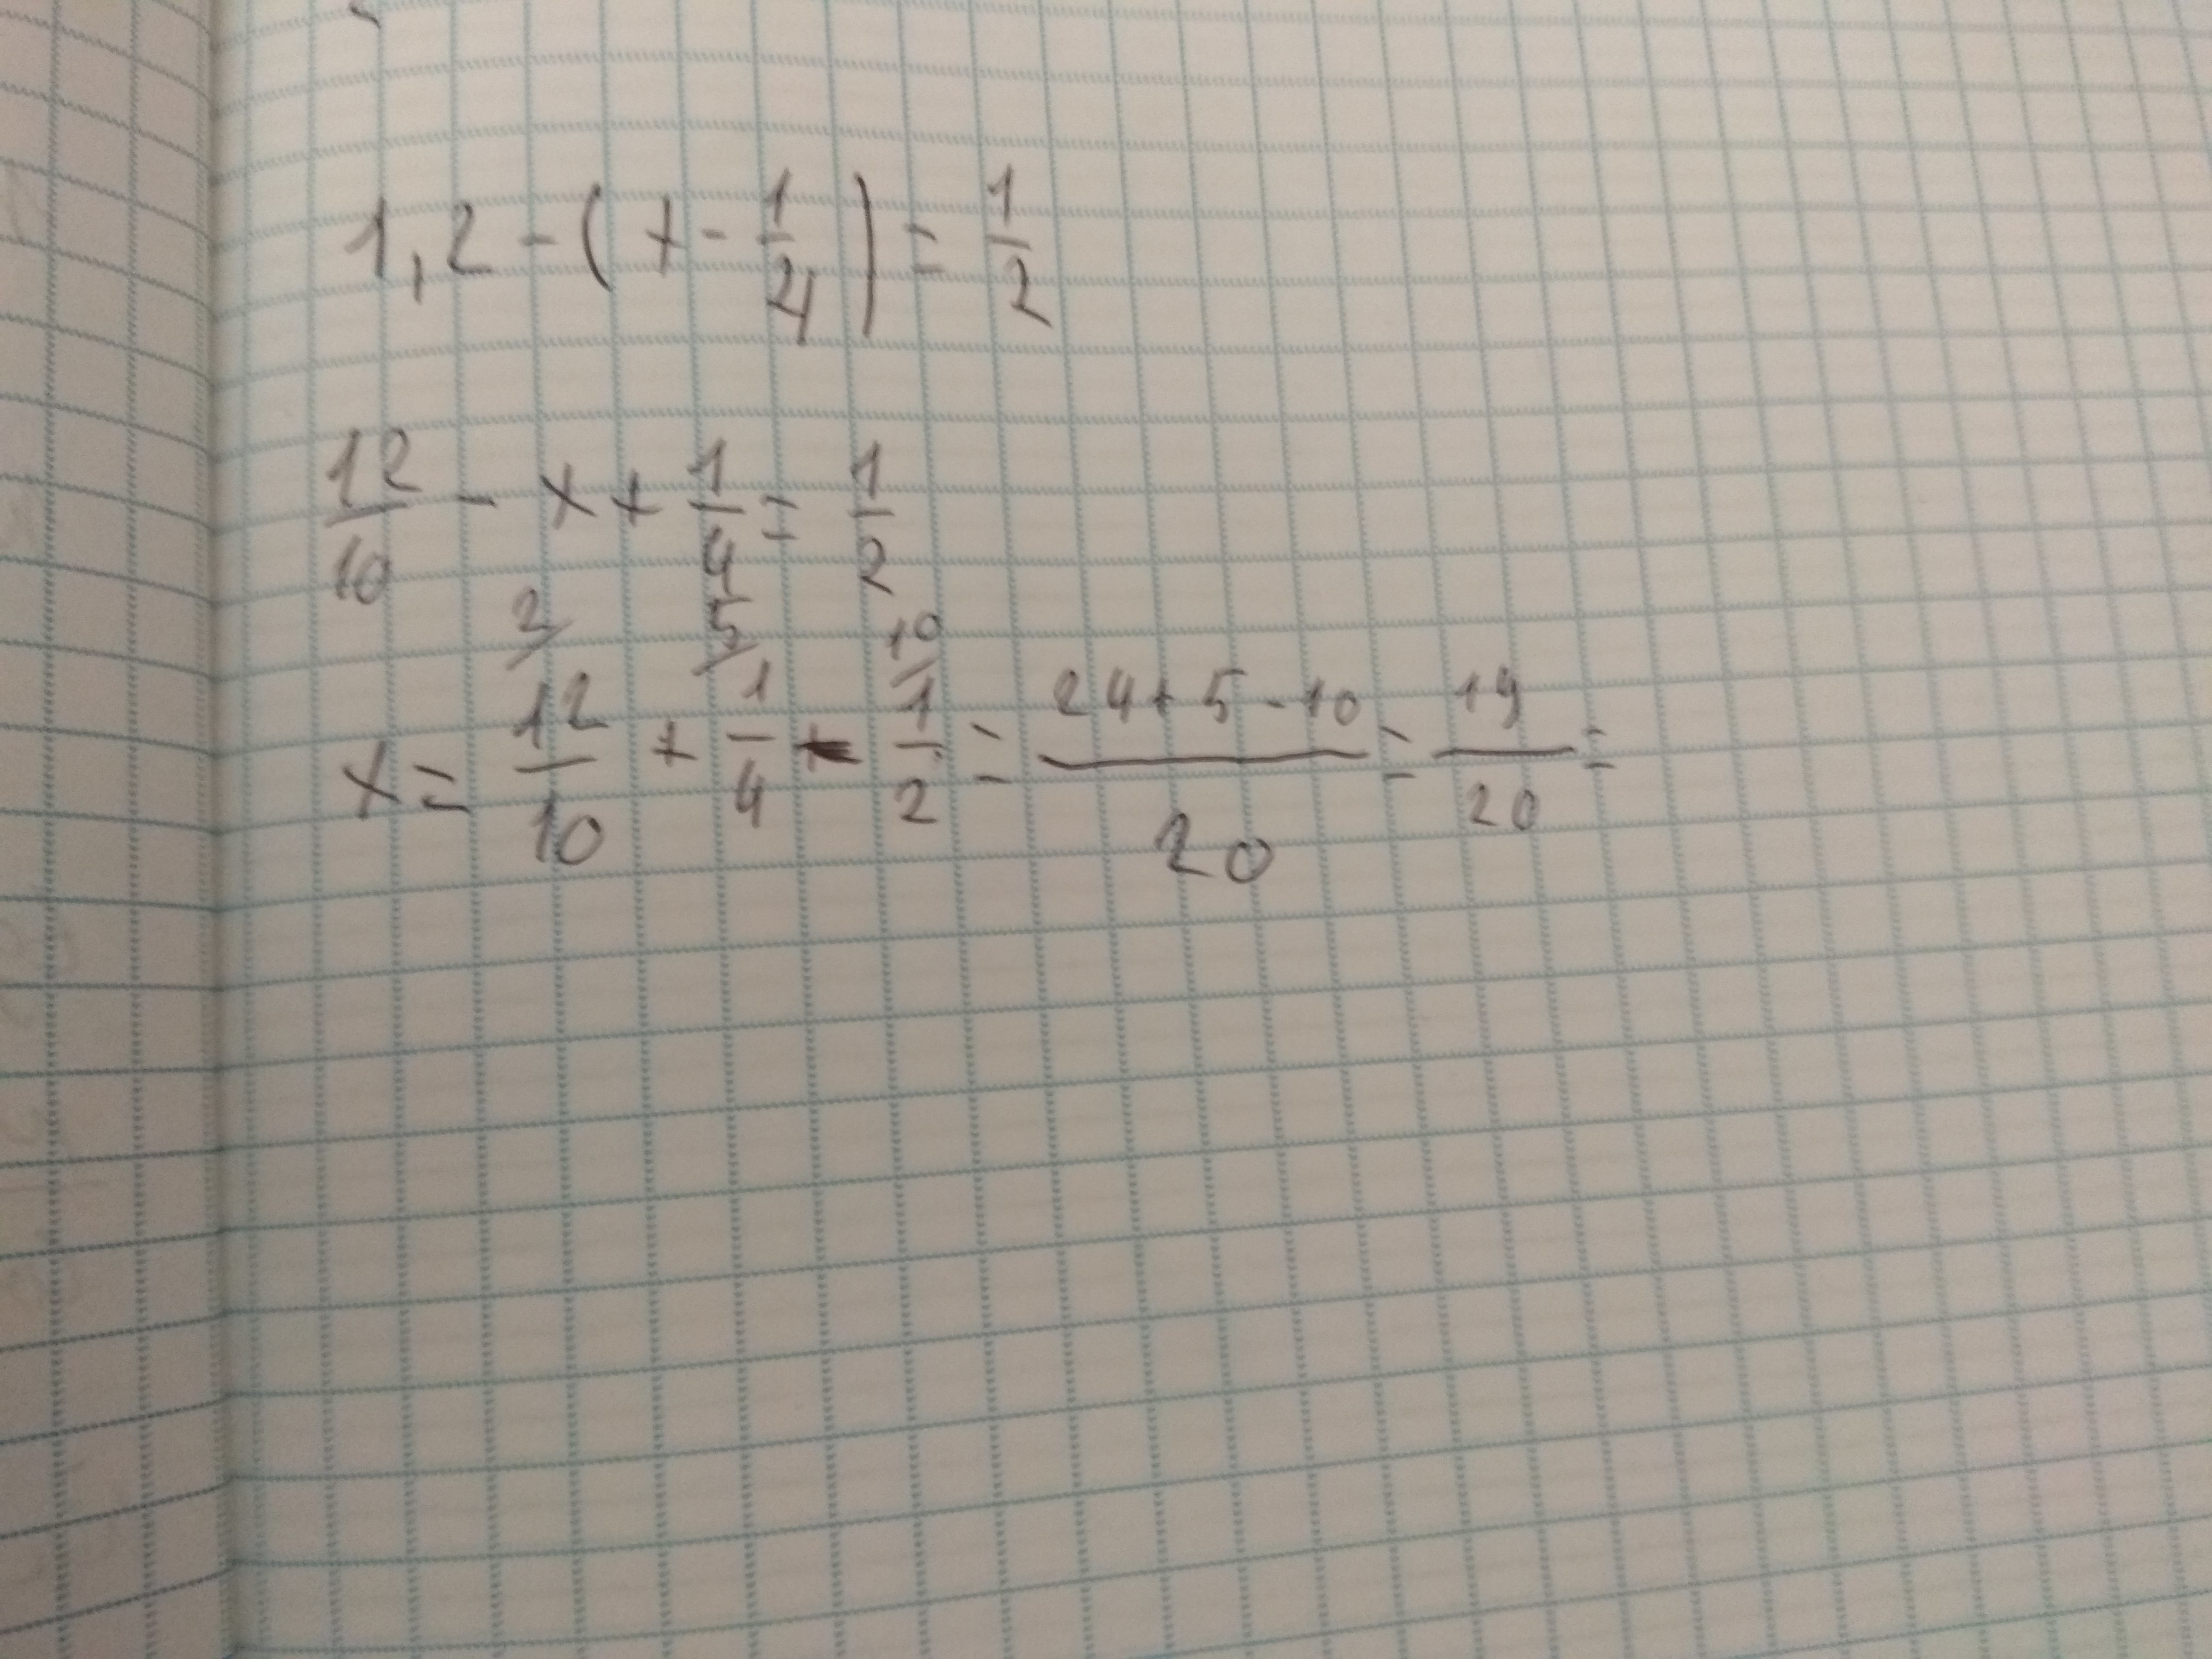 1,2 - (x - 1/4) = 1/2
12/10 - x + 1/4 = 1/2
2/ 5/ 10/
x = 12/10 + 1/4 - 1/2 = (24 + 5 - 10)/20 = 19/20 =